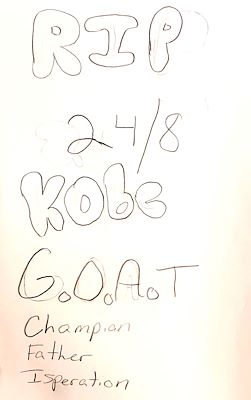 RIP
24/8
Kobe
G.O.A.T
Champian
Father
Isperation